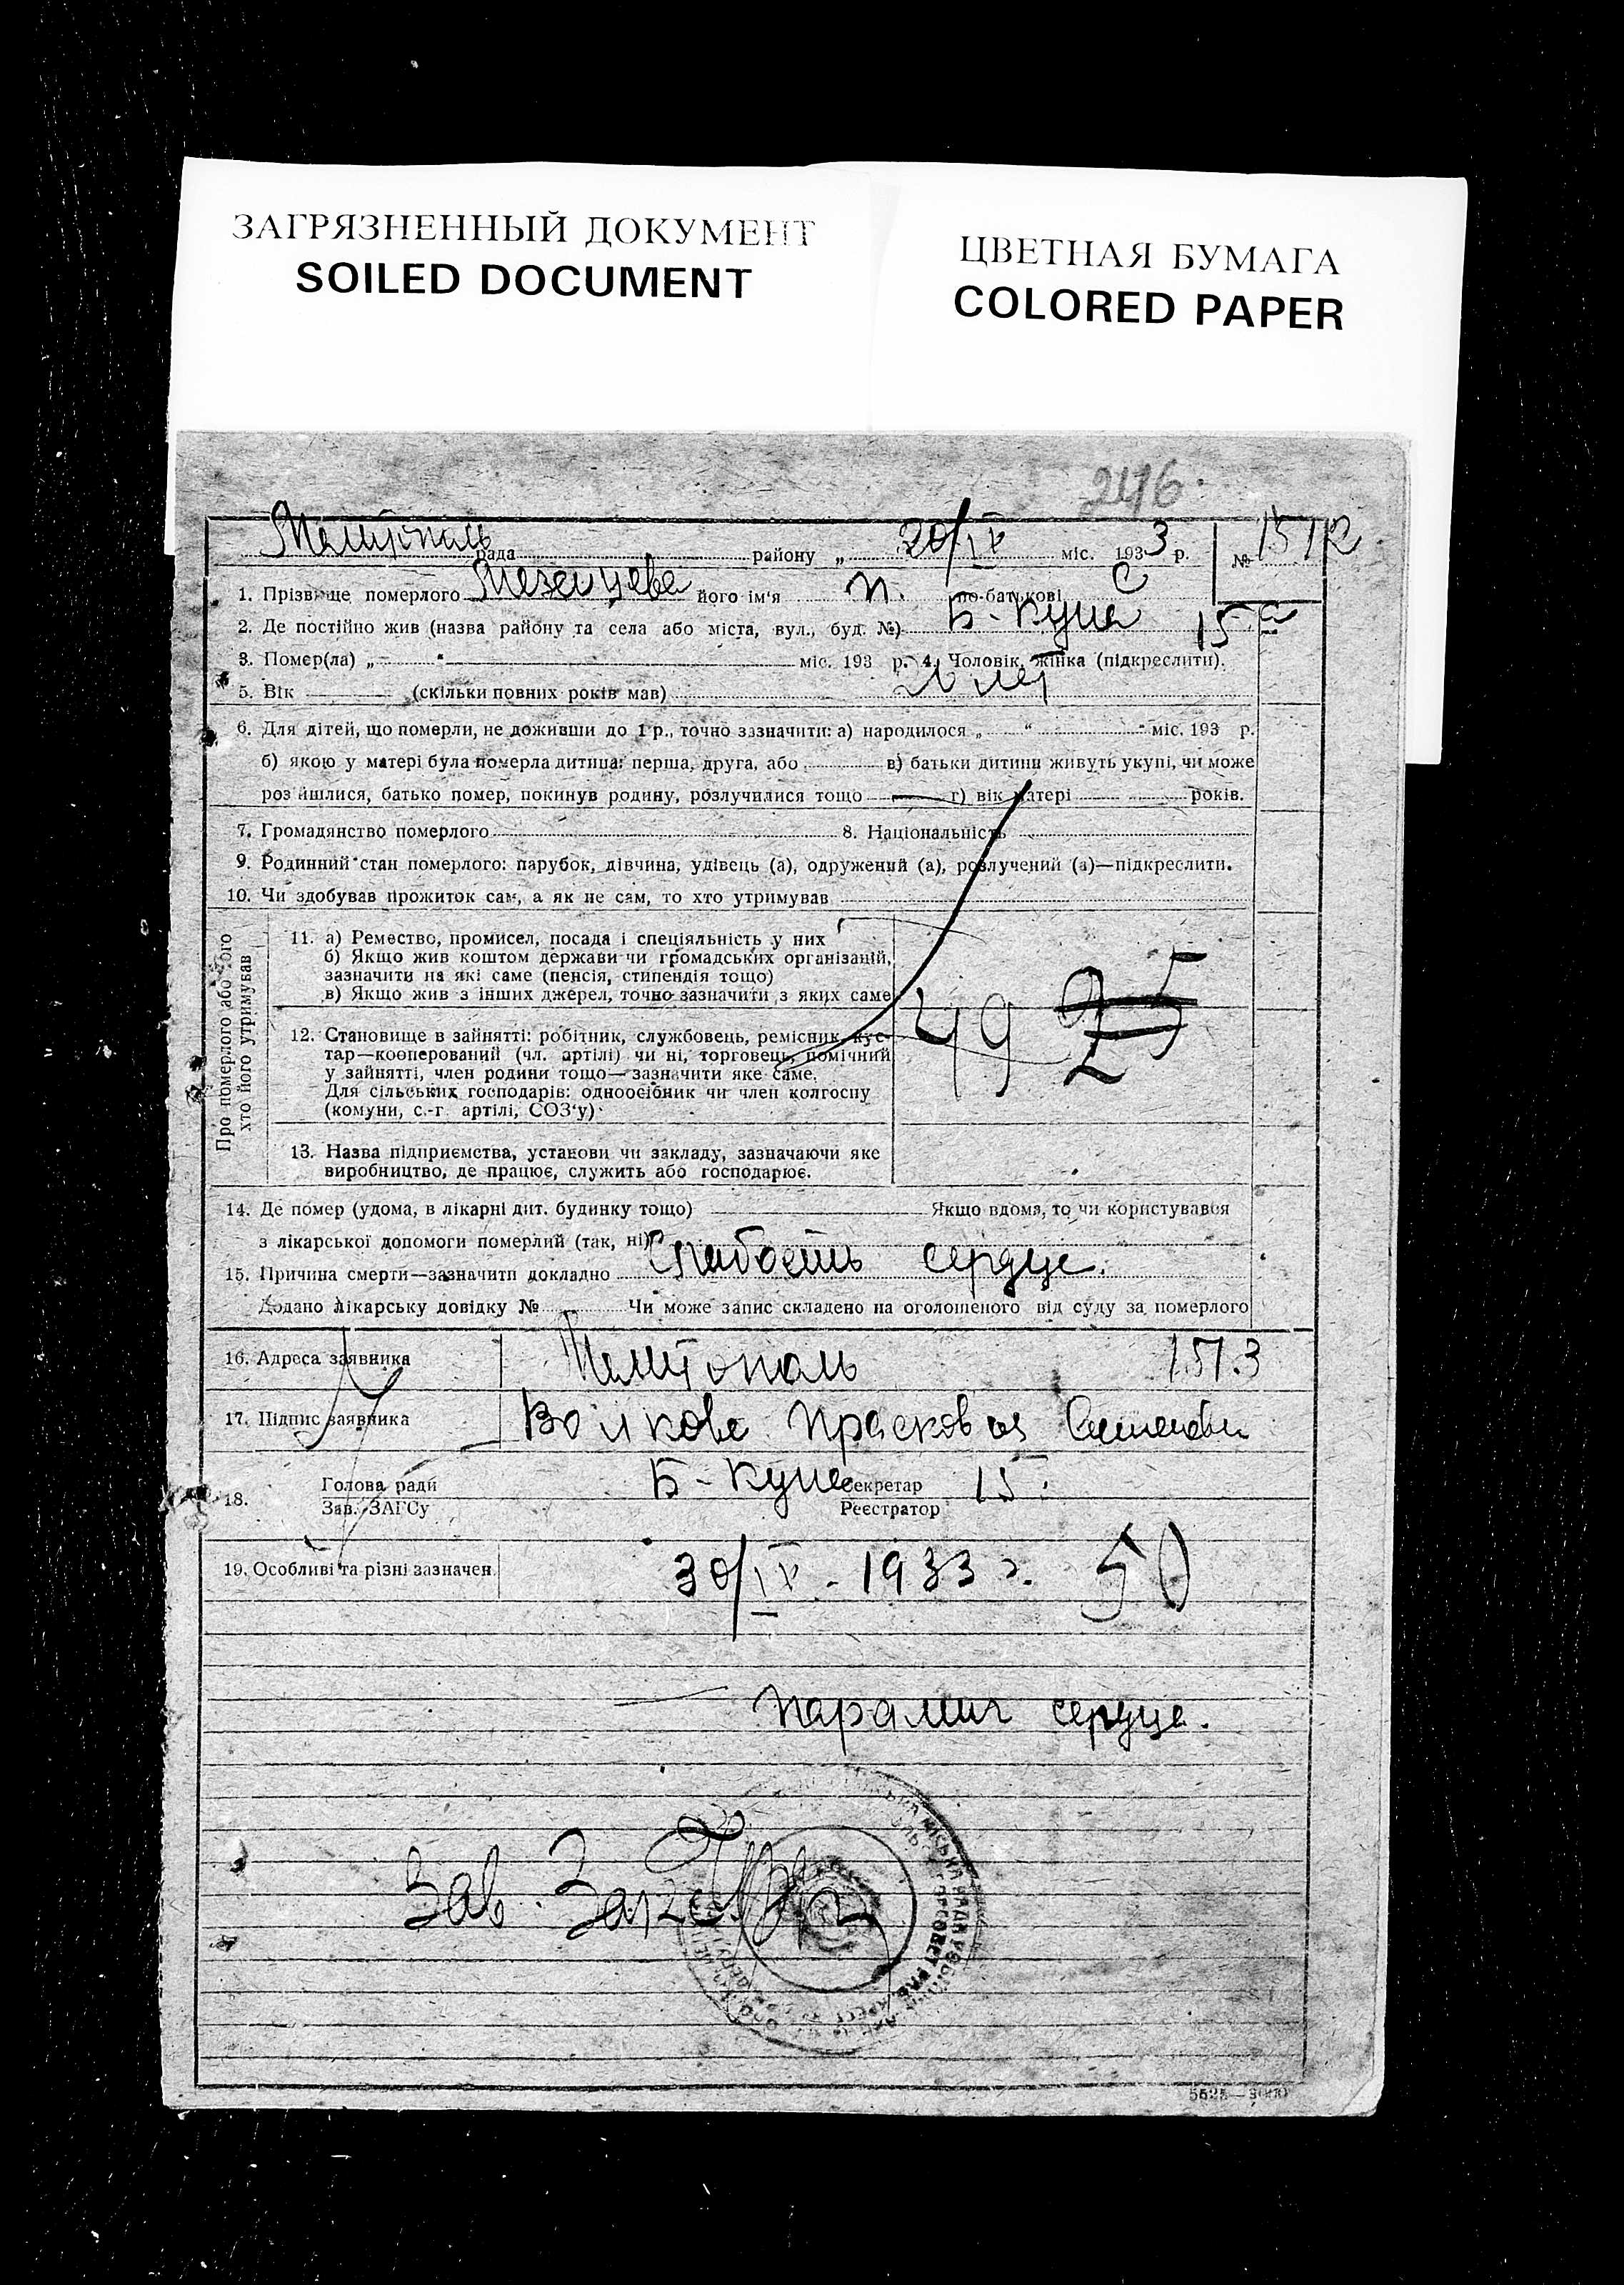 ЗАГРЯЗНЕННЫЙ ДОКУМЕНТ
SOILED DOCUMENT
ЦВЕТНАЯ БУМАГА
COLORED PAPER
2476
Мелитополь рада району „ 20/IV міс. 1933 р. № 1512
1. Прізвище померлого Мезенцева його ім'я П. по-батькові С
2. Де постійно жив (назва району та села або міста, вул., буд. №) Б-Куча 15 а
3. Помер(ла) „ “ міс. 193 р. 4. Чоловік, жінка (підкреслити).
5. Вік (скільки повних років мав) лет
6. Для дітей, що померли, не доживши до 1 р., точно зазначити: а) народилося „ “ міс. 193 р.
б) якою у матері була померла дитина: перша, друга, або в) батьки дитини живуть укупі, чи може
розійшлися, батько помер, покинув родину, розлучилися тощо г) вік матері років.
7. Громадянство померлого 8. Національність
9. Родинний стан померлого: парубок, дівчина, удівець (а), одружений (а), розлучений (а)—підкреслити.
10. Чи здобував прожиток сам, а як не сам, то хто утримував
Про померлого або того хто його утримував
11. а) Ремество, промисел, посада і спеціяльність у них
б) Якщо жив коштом держави чи громадських організацій,
зазначити на які саме (пенсія, стипендія тощо)
в) Якщо жив з інших джерел, точно зазначити з яких саме
49
12. Становище в зайнятті: робітник, службовець, ремісник, кус-
тар—кооперований (чл. артілі) чи ні, торговець, помічний
у зайнятті, член родини тощо—зазначити яке саме.
Для сільських господарів: одноосібник чи член колгоспу
(комуни, с.-г. артілі, СОЗ'у)
13. Назва підприємства, установи чи закладу, зазначаючи яке
виробництво, де працює, служить або господарює.
14. Де помер (удома, в лікарні дит. будинку тощо) Якщо вдома, то чи користувався
з лікарської допомоги померлий (так, ні)
15. Причина смерти—зазначити докладно Слабость сердце.
Додано лікарську довідку № Чи може запис складено на оголошеного від суду за померлого
16. Адреса заявника Мелитополь 1513
17. Підпис заявника Волкова Прасковья
18. Голова ради Б-Куча Секретар 15
Зав. ЗАГСу Реєстратор
19. Особливі та різні зазначен. 30/IV - 1933 г. 50
паралич сердце.
Зав. Загс
5625—